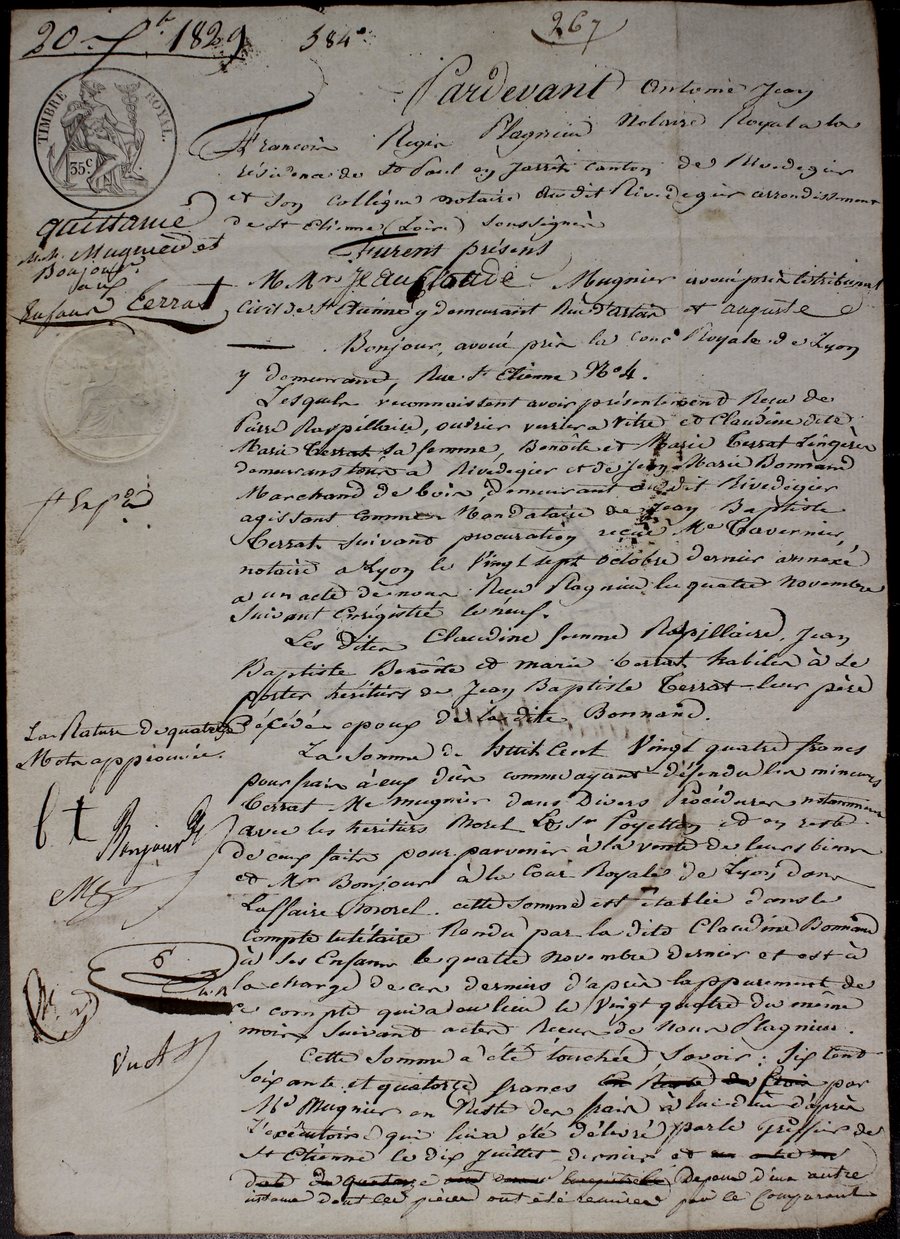 20 1829
584
267
TIMBRE ROYAL.
35c
quittance
M.M. Mugnier et
Bonjour
aux
Enfans Terrat
Pardevant Antoine Jean
François Regis Plagnieu Notaire Royal a la
résidence de St Paul en Jarrêt canton de Rivedegier
et son Collègue notaire audit Rivedegier arrondissement
de St Etienne (Loire) soussignés
Furent présens
M Mrs Jean Claude Mugnier avoué près le tribunal
Civil de St Etienne y demeurant Rue d'artois et auguste
Bonjour, avoué près la cour Royale de Lyon
y demeurant, Rue St Etienne No 4.
Lesquels reconnaissent avoir présentement Recu de
Pierre Raspillaire, ouvrier verrier a vitre et Claudine dite
Marie Terrat sa femme, Benoîte et Marie Terrat Lingères
demeurans tous a Rivedegier et de Jean Marie Bonnand
Marchand de bois, demeurant audit Rivedegier
agissant comme Mandataire de Jean Baptiste
Terrat suivant procuration reçue Me Tavernier,
notaire a Lyon le Vingt sept octobre dernier annexé
a un acte de nous Recu Plagnieu le quatre novembre
suivant Enrégistré le neuf.
Les dites Claudine femme Raspillaire, Jean
Baptiste Benoîte et marie Terrat habiles à se
porter héritiers de Jean Baptiste Terrat leur père
décédé epoux de la dite Bonnand.
La Rature de quatre
Mots approuvée.
La somme de huit Cent Vingt quatre francs
pour frais à eux dûs comme ayant défendu les mineurs
Terrat Me Mugnier dans Divers Procédures notamment
avec les héritiers Morel Le Sr Poyetton et en reste
de ceux faits pour parvenir à la vente de leurs biens
Bonjour
et Mr Bonjour à la Cour Royale de Lyon dans
Laffaire Morel. cette somme est établie dans le
Compte tutélaire Rendu par la dite Claudine Bonnand
à ses Enfans le quatre novembre dernier et est à
la charge de ces derniers d'après lappurement de
ce compte qui a eu lieu le Vingt quatre du même
mois suivant actes Recus de Nous Plagnieu.
6
Cette somme a été touchée Savoir: Six Cent
soixante et quatorze francs par
Me Mugnier en Reste des frais à lui dûs d'après
l'exécutoire qui lui a été délivré par le Greffier de
St Etienne le dix Juillet dernier et
Depens d'un autre
instance dont les pièces ont été remises par le Comparant